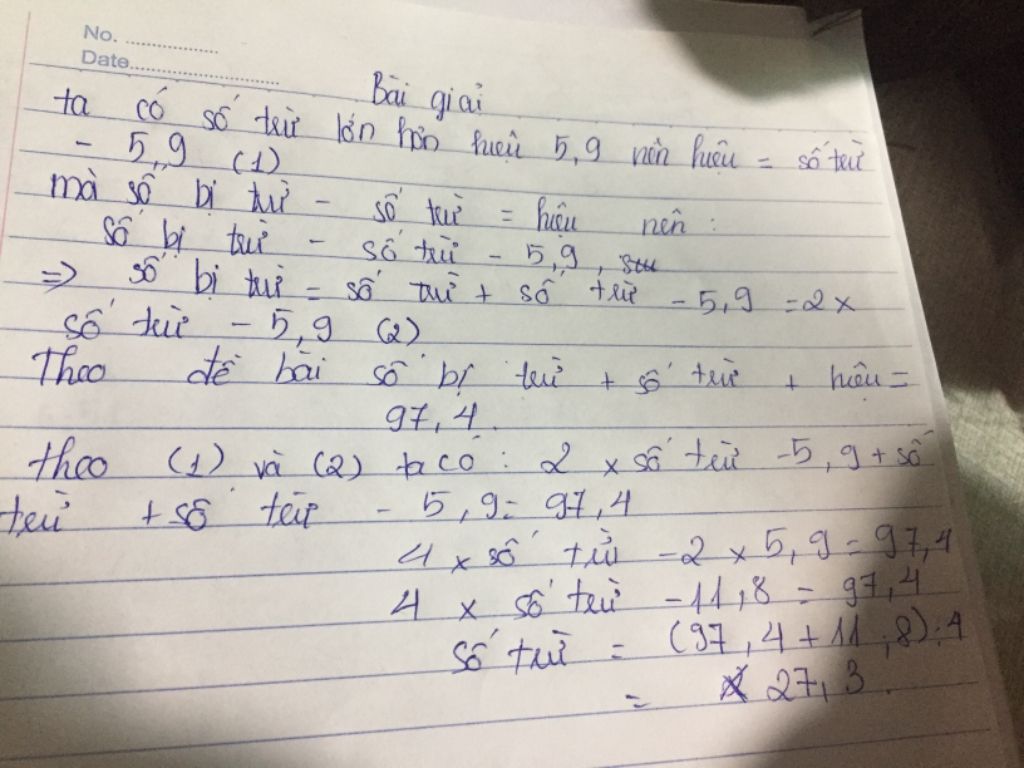 No. ..................
Date..............................
Bài giải
ta có số trừ lớn hơn hiệu 5,9 nên hiệu = số trừ
- 5,9 (1)
mà số bị trừ - số trừ = hiệu nên :
số bị trừ - số trừ - 5,9 ,
=> số bị trừ = số trừ + số trừ - 5,9 = 2 x
số trừ - 5,9 (2)
Theo đề bài số bị trừ + số trừ + hiệu =
97,4.
theo (1) và (2) ta có : 2 x số trừ - 5,9 + số
trừ + số trừ - 5,9 = 97,4
4 x số trừ - 2 x 5,9 = 97,4
4 x số trừ - 11,8 = 97,4
số trừ = (97,4 + 11,8) : 4
= 27,3.